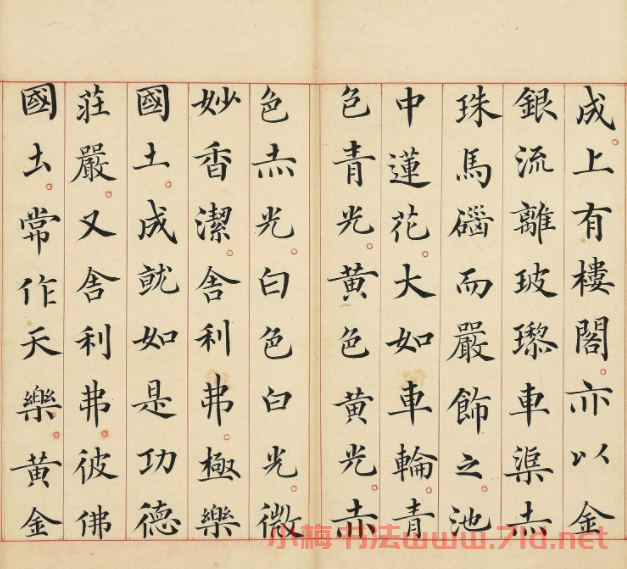 成。上有樓閣。亦以金
銀流離玻瓈車渠赤
珠馬碯而嚴飾之。池
中蓮花。大如車輪。青
色青光。黃色黃光。赤
色赤光。白色白光。微
妙香潔。舍利弗。極樂
國土。成就如是功德
莊嚴。又舍利弗。彼佛
國土。常作天樂。黃金
小梅书法www.71d.net